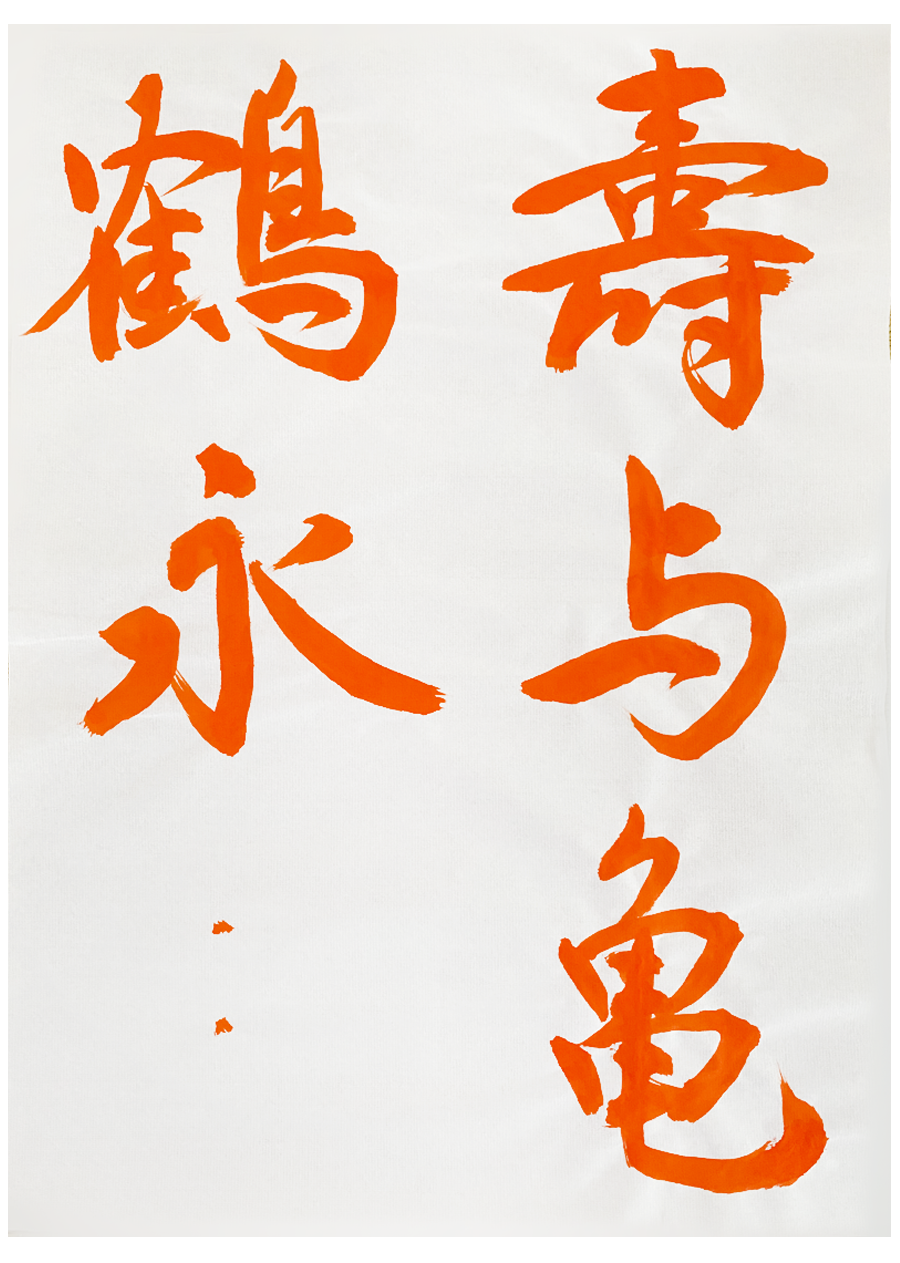 壽与亀
鶴永: